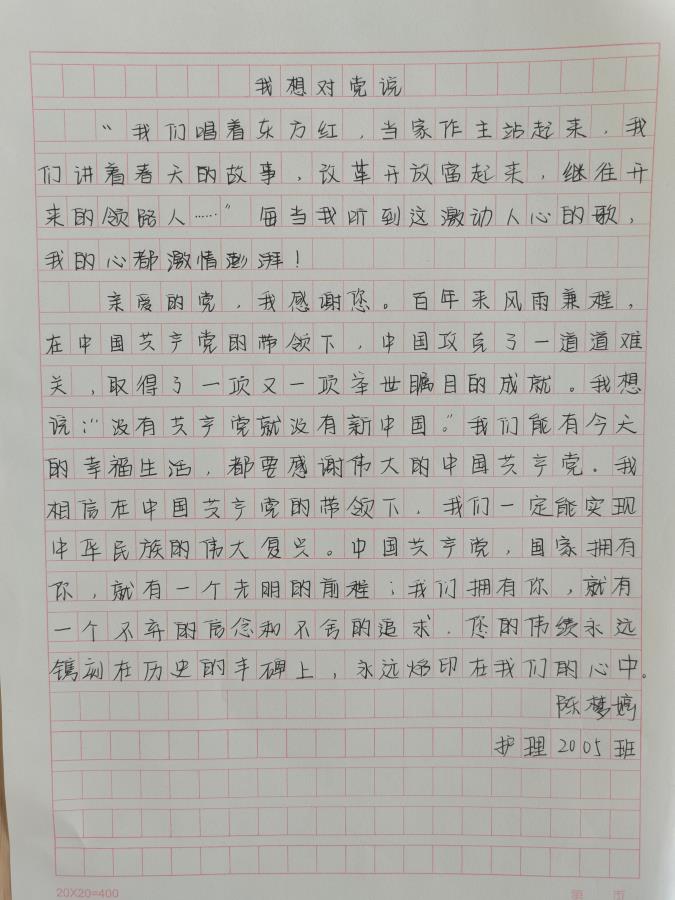 我想对党说
“我们唱着东方红，当家作主站起来，我
们讲着春天的故事，改革开放富起来，继往开
来的领路人……”每当我听到这激动人心的歌，
我的心都激情澎湃！
亲爱的党，我感谢您。百年来风雨兼程，
在中国共产党的带领下，中国攻克了一道道难
关，取得了一项又一项举世瞩目的成就。我想
说：“没有共产党就没有新中国。”我们能有今天
的幸福生活，都要感谢伟大的中国共产党。我
相信在中国共产党的带领下，我们一定能实现
中华民族的伟大复兴。中国共产党，国家拥有
你，就有一个光明的前程；我们拥有你，就有
一个不弃的信念和不舍的追求，您的伟绩永远
镌刻在历史的丰碑上，永远烙印在我们的心中。
陈梦婷
护理2005班
20X20=400
第 页